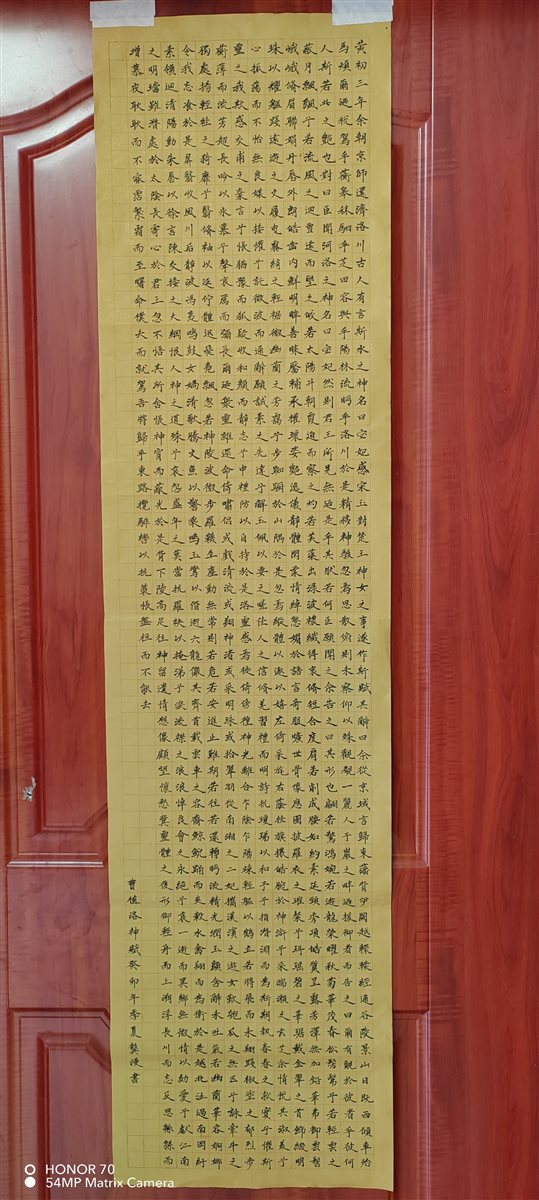 黄初三年余朝京師還濟洛川古人有言斯水之神名曰宓妃感宋玉對楚王神女之事遂作斯賦其辭曰余從京域言歸東藩背伊闕越轘轅經通谷陵景山日既西傾車殆
馬煩爾迺税駕乎蘅皋秣駟乎芝田容與乎陽林流眄乎洛川於是精移神駭忽焉思散俯則未察仰以殊觀覩一麗人于巖之畔迺援御者而告之曰爾有覿於彼者乎彼何
人斯若此之艷也對曰臣聞河洛之神名曰宓妃然則君王所見無迺是乎其狀若何臣願聞之余告之曰其形也翩若驚鴻婉若遊龍榮曜秋菊華茂春松髣髴兮若輕雲之
蔽月飄颻兮若流風之迴雪遠而望之皎若太陽升朝霞迫而察之灼若芙蕖出淥波穠纖得衷脩短合度肩若削成腰如約素延頸秀項皓質呈露芳澤無加鉛華弗御雲髻
峨峨脩眉聯娟丹唇外朗皓齒內鮮明眸善睞靨輔承權瓌姿艷逸儀靜體閑柔情綽態媚於語言奇服曠世骨像應圖披羅衣之璀粲兮珥瑤碧之華琚戴金翠之首飾綴明
珠以耀軀踐遠遊之文履曳霧綃之輕裾微幽蘭之芳藹兮步踟躕於山隅於是忽焉縱體以遨以嬉左倚采旄右蔭桂旗攘皓腕於神滸兮采湍瀨之玄芝余情悅其淑美兮
心振蕩而不怡無良媒以接懽兮託微波而通辭願誠素之先達兮解玉佩以要之嗟佳人之信脩羌習禮而明詩抗瓊珶以和予兮指潛淵而為期執眷眷之款實兮懼斯
靈之我欺感交甫之棄言兮悵猶豫而狐疑收和顏而靜志兮申禮防以自持於是洛靈感焉徙倚傍徨神光離合乍陰乍陽竦輕軀以鶴立若將飛而未翔踐椒塗之郁烈步
蘅薄而流芳超長吟以永慕兮聲哀厲而彌長爾迺眾靈雜遝命儔嘯侶或戲清流或翔神渚或采明珠或拾翠羽從南湘之二妃攜漢濱之遊女歎匏瓜之無匹兮詠牽牛之
獨處揚輕袿之猗靡兮翳脩袖以延佇體迅飛鳧飄忽若神陵波微步羅襪生塵動無常則若危若安進止難期若往若還轉眄流精光潤玉顏含辭未吐氣若幽蘭華容婀娜
令我忘飡於是屏翳收風川后靜波馮夷鳴鼓女媧清歌騰文魚以警乘鳴玉鸞以偕逝六龍儼其齊首載雲車之容裔鯨鯢踊而夾轂水禽翔而為衛於是越北沚過南岡紆
素領迴清陽動朱唇以徐言陳交接之大綱恨人神之道殊兮哀怨盛年之莫當抗羅袂以掩涕兮淚流襟之浪浪悼良會之永絕兮哀一逝而異鄉無微情以効愛兮獻江南
之明璫雖潛處於太陰長寄心於君王忽不悟其所舍悵神宵而蔽光於是背下陵高足往神留遺情想像顧望懷愁冀靈體之復形御輕舟而上溯浮長川而忘反思緜緜而
增慕夜耿耿而不寐霑繁霜而至曙命僕夫而就駕吾將歸乎東路攬騑轡以抗策悵盤桓而不能去
曹植洛神賦癸卯年季夏龔漫書
HONOR 70
54MP Matrix Camera